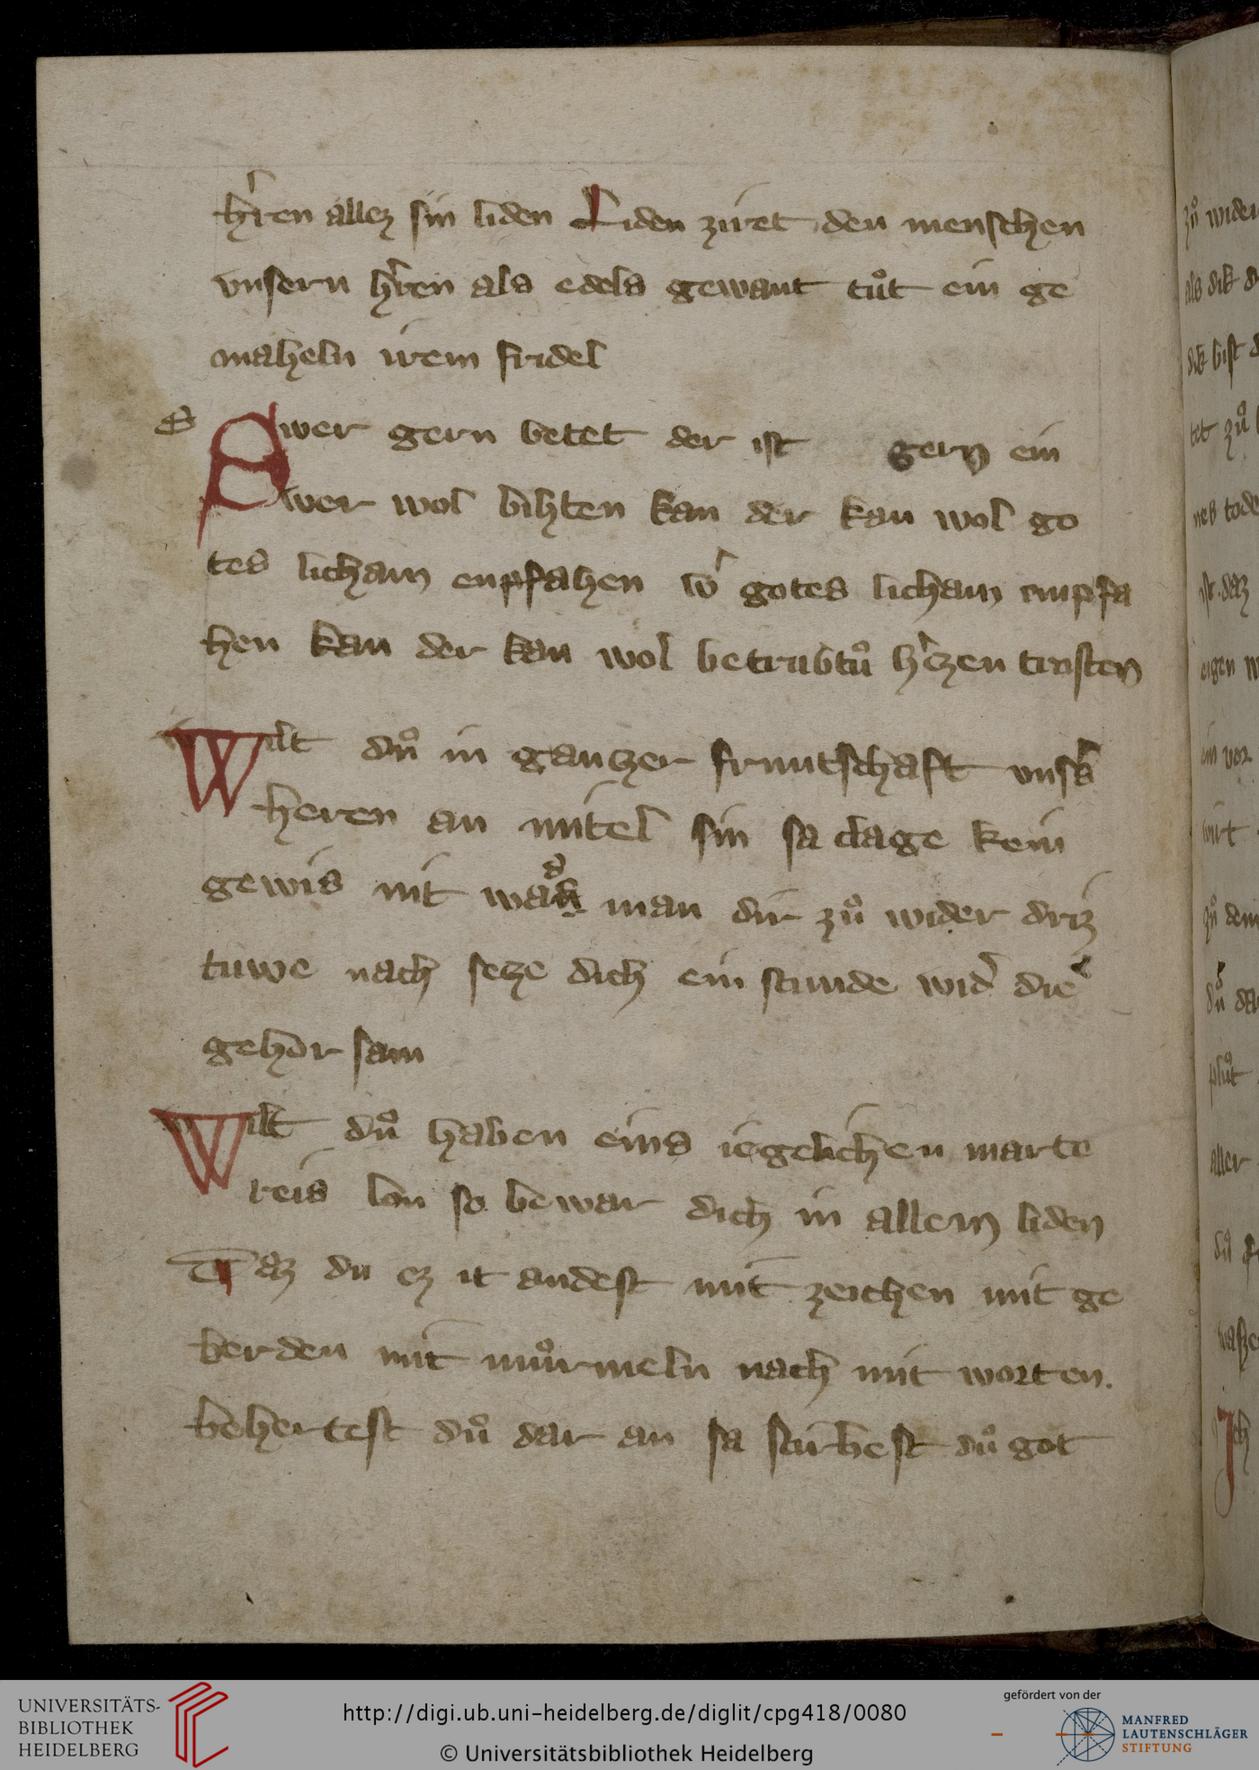 hꝛ̛en allez sin liden Liden ziret den menschen
vnsern hꝛ̛en als edels gewant tuͦt ein ge
maheln irem fridel
Swer gern betet der ist gern ein
swer wol bihten kan der kan wol go
tes licham enpfahen w̛ gotes licham empfa
hen kan der kan wol betrubtuͦ h̛tzen trosten
Wilt duͦ in gantzer fruntschaft vns̛
heren an mitel sin sa clage kein
gewis nit man dir zuͦ wider driz
tuwe nach setze dich ein stunde wid̛ die
gehor sam
Wilt duͦ haben eins iegelichen marte
reis lon so bewar dich in allem liden
Daz du ez it andest mit zeichen mit ge
berden mit muͦrmeln nach mit worten.
behertest duͦ dar an sa sturbest duͦ got
zuͦ wider
als dik
dik bist
tet zuͦ
nes tode
eigen
ein vor
wirt
zuͦ dem
duͦ da
pluͦt
aller
Ich
UNIVERSITÄTS-
BIBLIOTHEK
HEIDELBERG
http://digi.ub.uni-heidelberg.de/diglit/cpg418/0080
© Universitätsbibliothek Heidelberg
gefördert von der
MANFRED
LAUTENSCHLÄGER
STIFTUNG